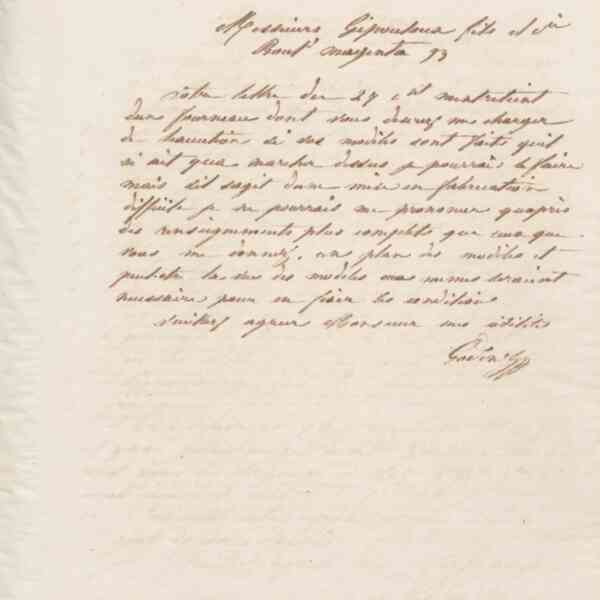 Messieurs Gipoulou fils et Cie
Boul^t magenta 93
Votre lettre du 27 c^nt m'entretient
d'un fourneau dont vous désirez me charger
de l'exécution si vos modèles sont faits qu'il
n'ait qu'a marcher dessus je pourrais le faire
mais s'il sagit d'une mise en fabrication
difficile je ne pourrais me prononcer qu'après
des renseignements plus complets que ceux que
vous me donnez, un plan des modèles et
peut-etre la vue des modèles eux mêmes seraient
nécessaire pour en fixer les conditions
Veuillez agréer Monsieur mes civilités
Godin